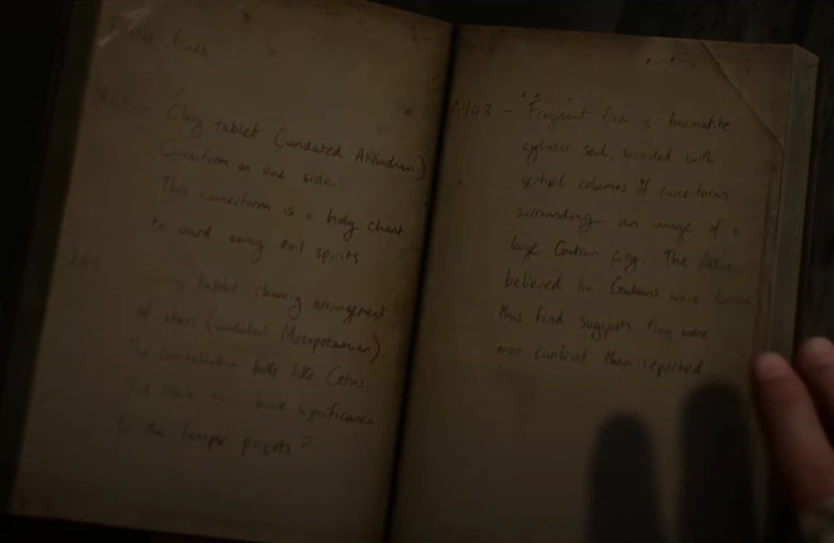 finds
Clay tablet (undated Akkadian)
Cuneiform on one side.
This cuneiform is a holy chant
to ward away evil spirits
Clay tablet showing arrangement
of stars (undated Mesopotamian).
The constellation looks like Cetus
have some significance
to the temple priests?
A143 – Fragment from a haematite
cylinder seal, decorated with
vertical columns of cuneiform
surrounding an image of a
large Gutian city. The
believed the Gutians were
this find suggests they were
more civilised than reported